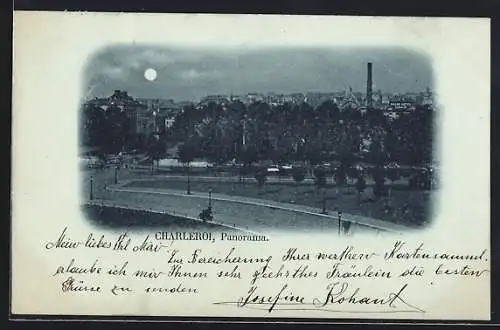 CHARLEROI, Panorama.
Mein liebes
Zur Bereicherung Ihrer werthen Kartensamml.
erlaube ich mir Ihnen sehr geehrtes Fräulein die besten
Grüsse zu senden
Josefine Kohant